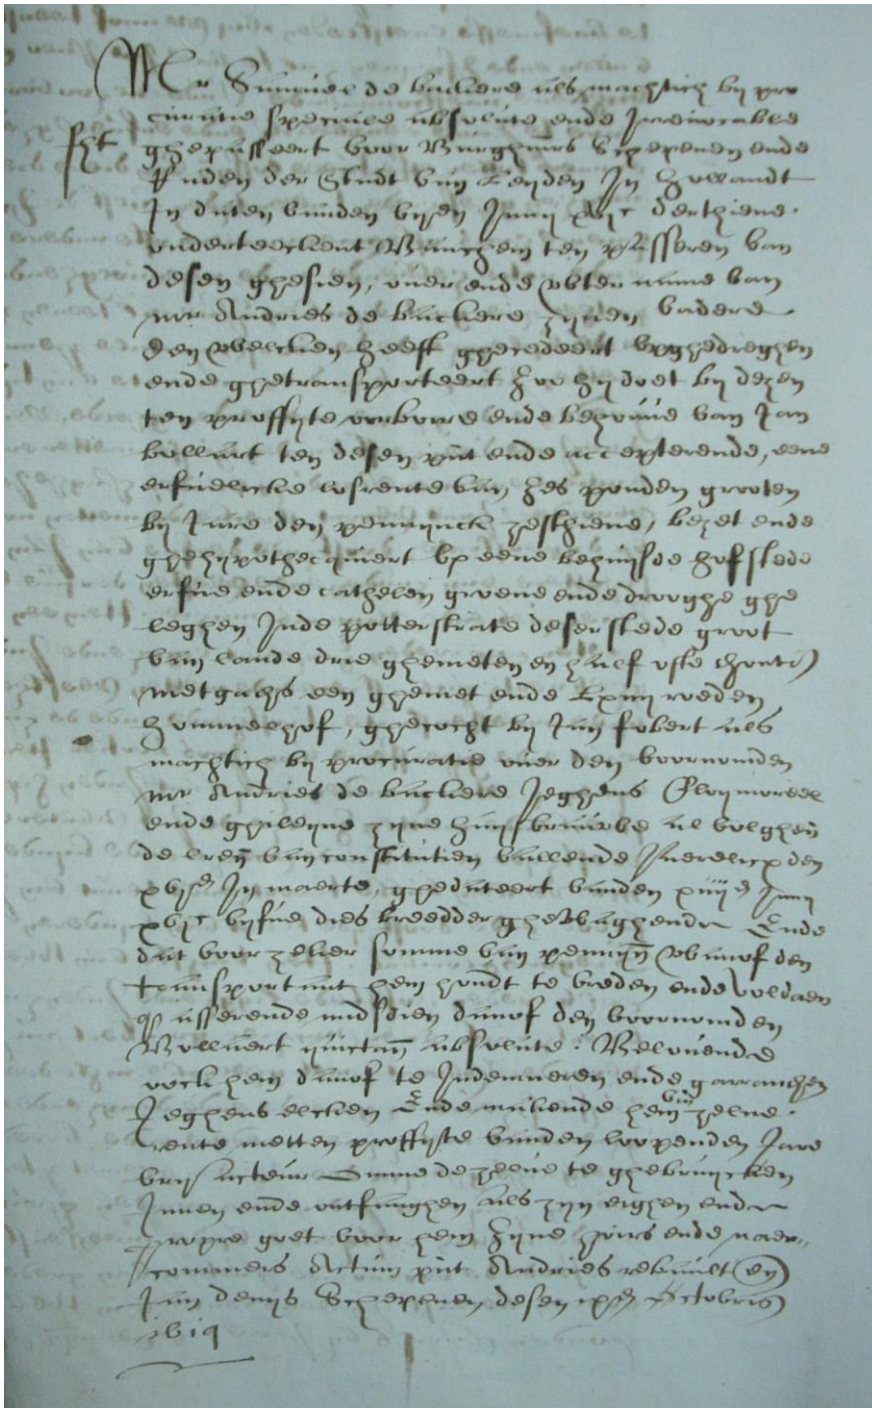 Mr Samuel de backere als machtich by pro
curatie speciale absolute ende Irrevocable
ghepasseert voor Burghmrs Schepenen ende
Raden der Stadt van Leyden In Hollandt
In daten vanden Junij xvjc derthiene
onderteeckent ten passeren van
desen ghesien, over ende uuter name van
mr Andries de backere zynen vadere
Den welcken heeft ghecedeert upghedreghen
ende ghetransporteert zoo hy doet by dezen
ten proffyte oorboire ende behouve van Jan
bollaert ten desen pnt ende accepterende, eene
erfuelicke losrente van zes ponden grooten
by Jare den pennynck zesthiene, bezet ende
ghehypothecquiert up eene behuysde hofstede
erfue ende cathelen groene ende drooghe ghe
leghen Inde potterstrate deser stede groot
van lande drie ghemeten en half
metgads een ghemet ende roeden
zommerhof, ghecocht by Jan fobert als
machtich by procuratie over den voornomden
mr Andries de backere Jeghens
ende ghileyne zyne huysvrauwe al volghen
de lren van constitutien vallende Jaerelicx den
xvjen In maerte, ghedateert vanden xiiijen Junij
xvjc vyfue dies breedder ghewaghende Ende
dat voor zeker somme van pennyn wanof den
transportant hem houdt te vreden ende voldaen
passerende midsdien danof den voornomden
Bollaert quictan absolute: Belovende
oock hem danof te Indemneren ende garranden
Jeghens elcken Ende makende hem van zelve
rente metten proffyte vanden loopenden Jare
vry acteur Omme dezelve te ghebruycken
Innen ende ontfanghen als zyn eighen ende
propre goet voor hem zyne hoirs ende naer
commers Actum pnt Andries rebault en
Jan denys Schepenen desen ixen Octobris
1619